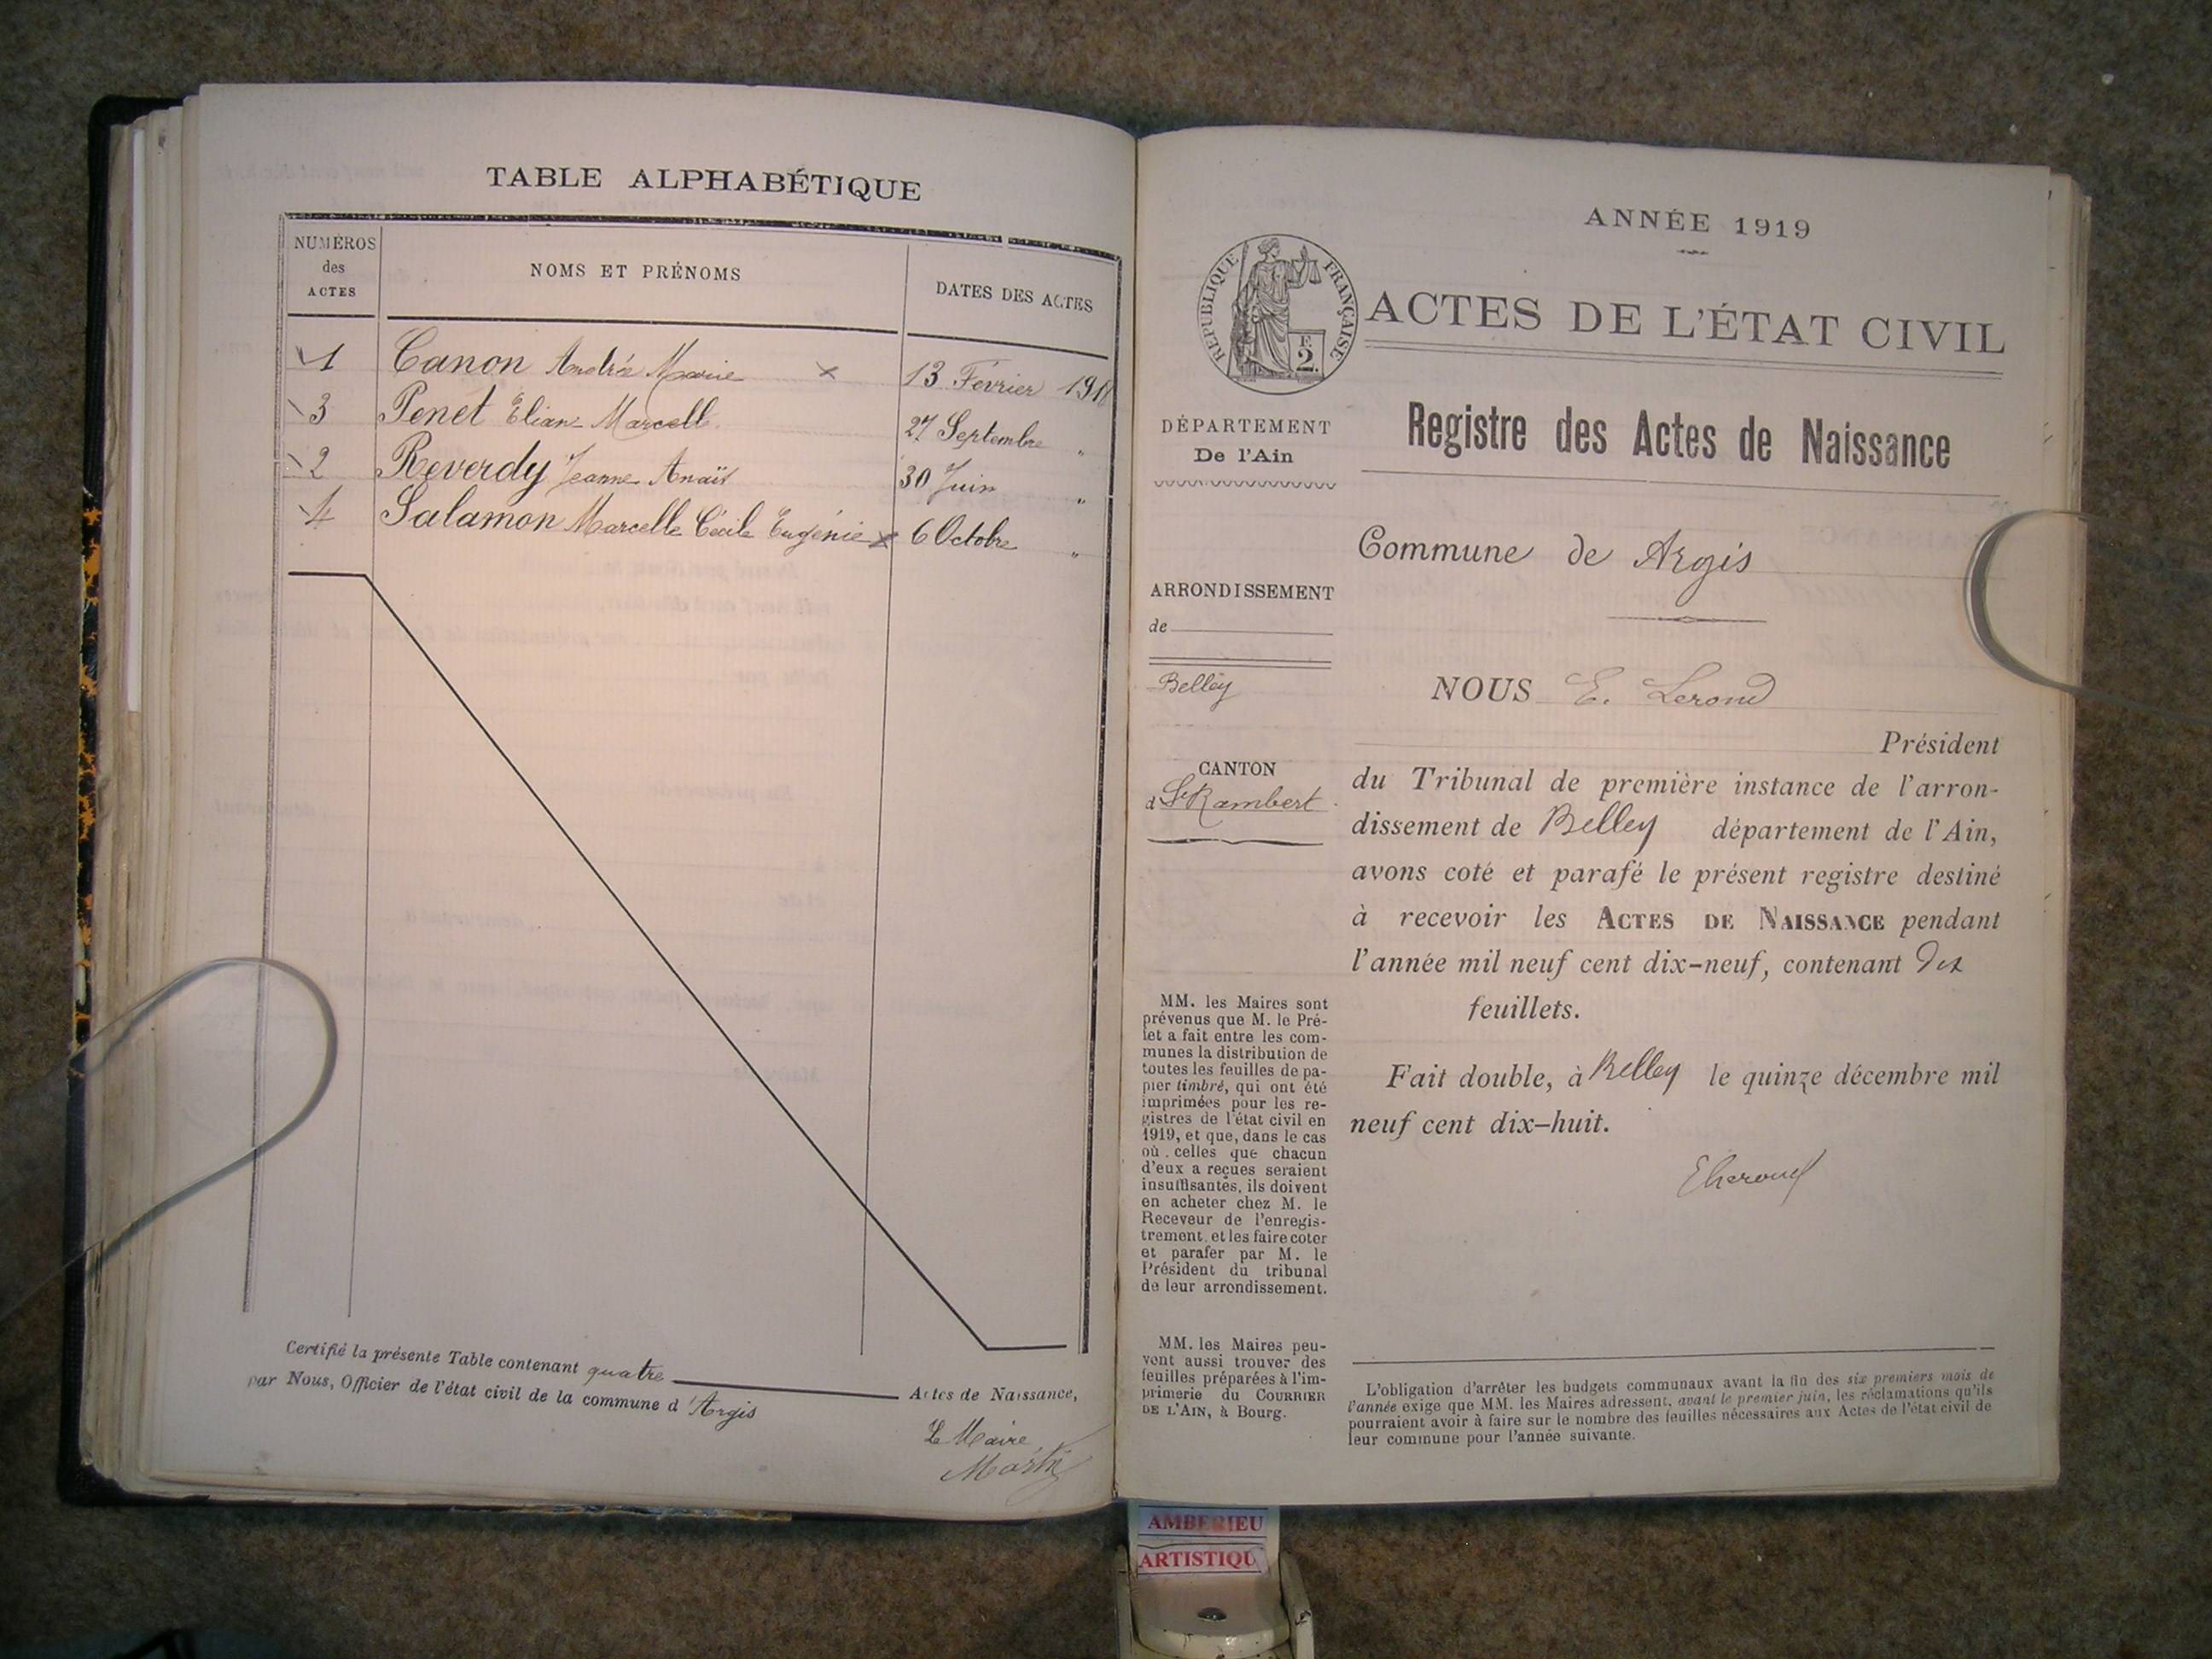 TABLE ALPHABÉTIQUE
NUMÉROS
des
ACTES
NOMS ET PRÉNOMS
DATES DES ACTES
1 Canon Andrée Marie 13 Février
3 Penet Eliane Marcelle 27 Septembre "
2 Reverdy Jeanne Anaïs 30 Juin "
4 Salamon Marcelle Cécile Eugénie 6 Octobre "
Certifié la présente Table contenant quatre Actes de Naissance,
par Nous, Officier de l'état civil de la commune d'Argis
Le Maire,
ANNÉE 1919
RÉPUBLIQUE FRANÇAISE
2.
ACTES DE L'ÉTAT CIVIL
Registre des Actes de Naissance
DÉPARTEMENT
De l'Ain
ARRONDISSEMENT
de
Belley
CANTON
d St Rambert
MM. les Maires sont
prévenus que M. le Pré-
fet a fait entre les com-
munes la distribution de
toutes les feuilles de pa-
pier timbré, qui ont été
imprimées pour les re-
gistres de l'état civil en
1919, et que, dans le cas
où celles que chacun
d'eux a reçues seraient
insuffisantes, ils doivent
en acheter chez M. le
Receveur de l'enregis-
trement, et les faire coter
et parafer par M. le
Président du tribunal
de leur arrondissement.
MM. les Maires peu-
vent aussi trouver des
feuilles préparées à l'im-
primerie du COURRIER
DE L'AIN, à Bourg.
Commune de Argis
NOUS E. Lerond
Président
du Tribunal de première instance de l'arron-
dissement de Belley département de l'Ain,
avons coté et parafé le présent registre destiné
à recevoir les ACTES DE NAISSANCE pendant
l'année mil neuf cent dix-neuf, contenant Dix
feuillets.
Fait double, à Belley le quinze décembre mil
neuf cent dix-huit.
L'obligation d'arrêter les budgets communaux avant la fin des six premiers mois de
l'année exige que MM. les Maires adressent, avant le premier juin, les réclamations qu'ils
pourraient avoir à faire sur le nombre des feuilles nécessaires aux Actes de l'état civil de
leur commune pour l'année suivante.
AMBERIEU
ARTISTIQU